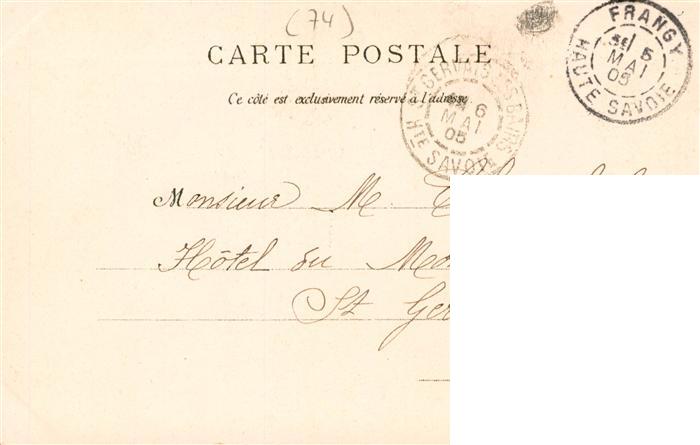 (74)
CARTE POSTALE
Ce côté est exclusivement réservé à l'adresse.
FRANGY
5
MAI
05
HAUTE SAVOIE
ST GERVAIS-LES-BAINS
6
MAI
05
HTE SAVOIE
Monsieur M.
Hôtel du
St